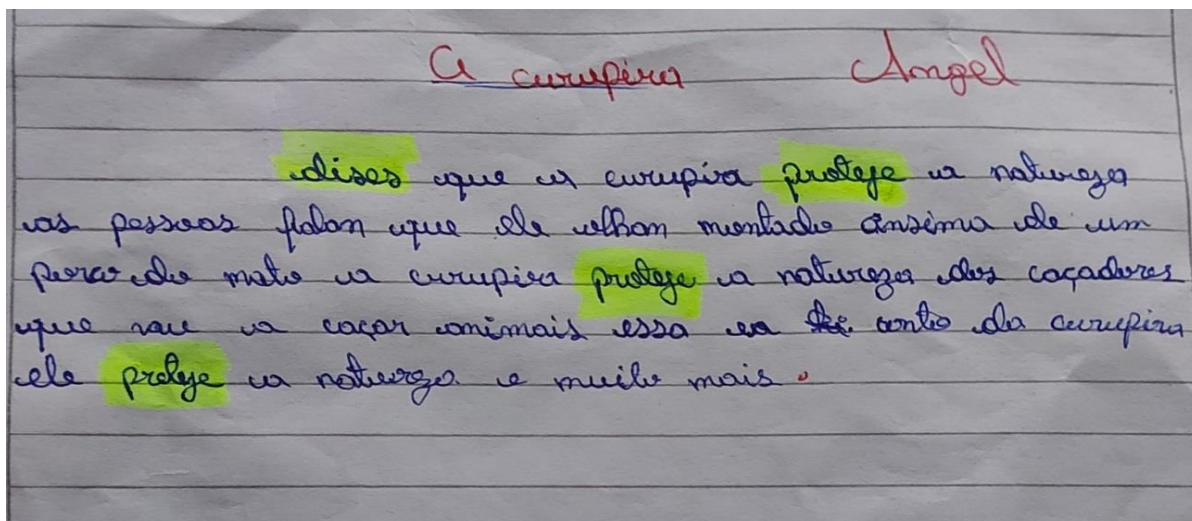 A curupira Angel
dises que a curupira proteje a natureza
as pessoas falan que ele olham montado ansima de um
do mato a curupira proteje a natureza dos caçadores
que vae a caçar animais essa ea conto da curupira
ele proteje a naturza e muito mais.